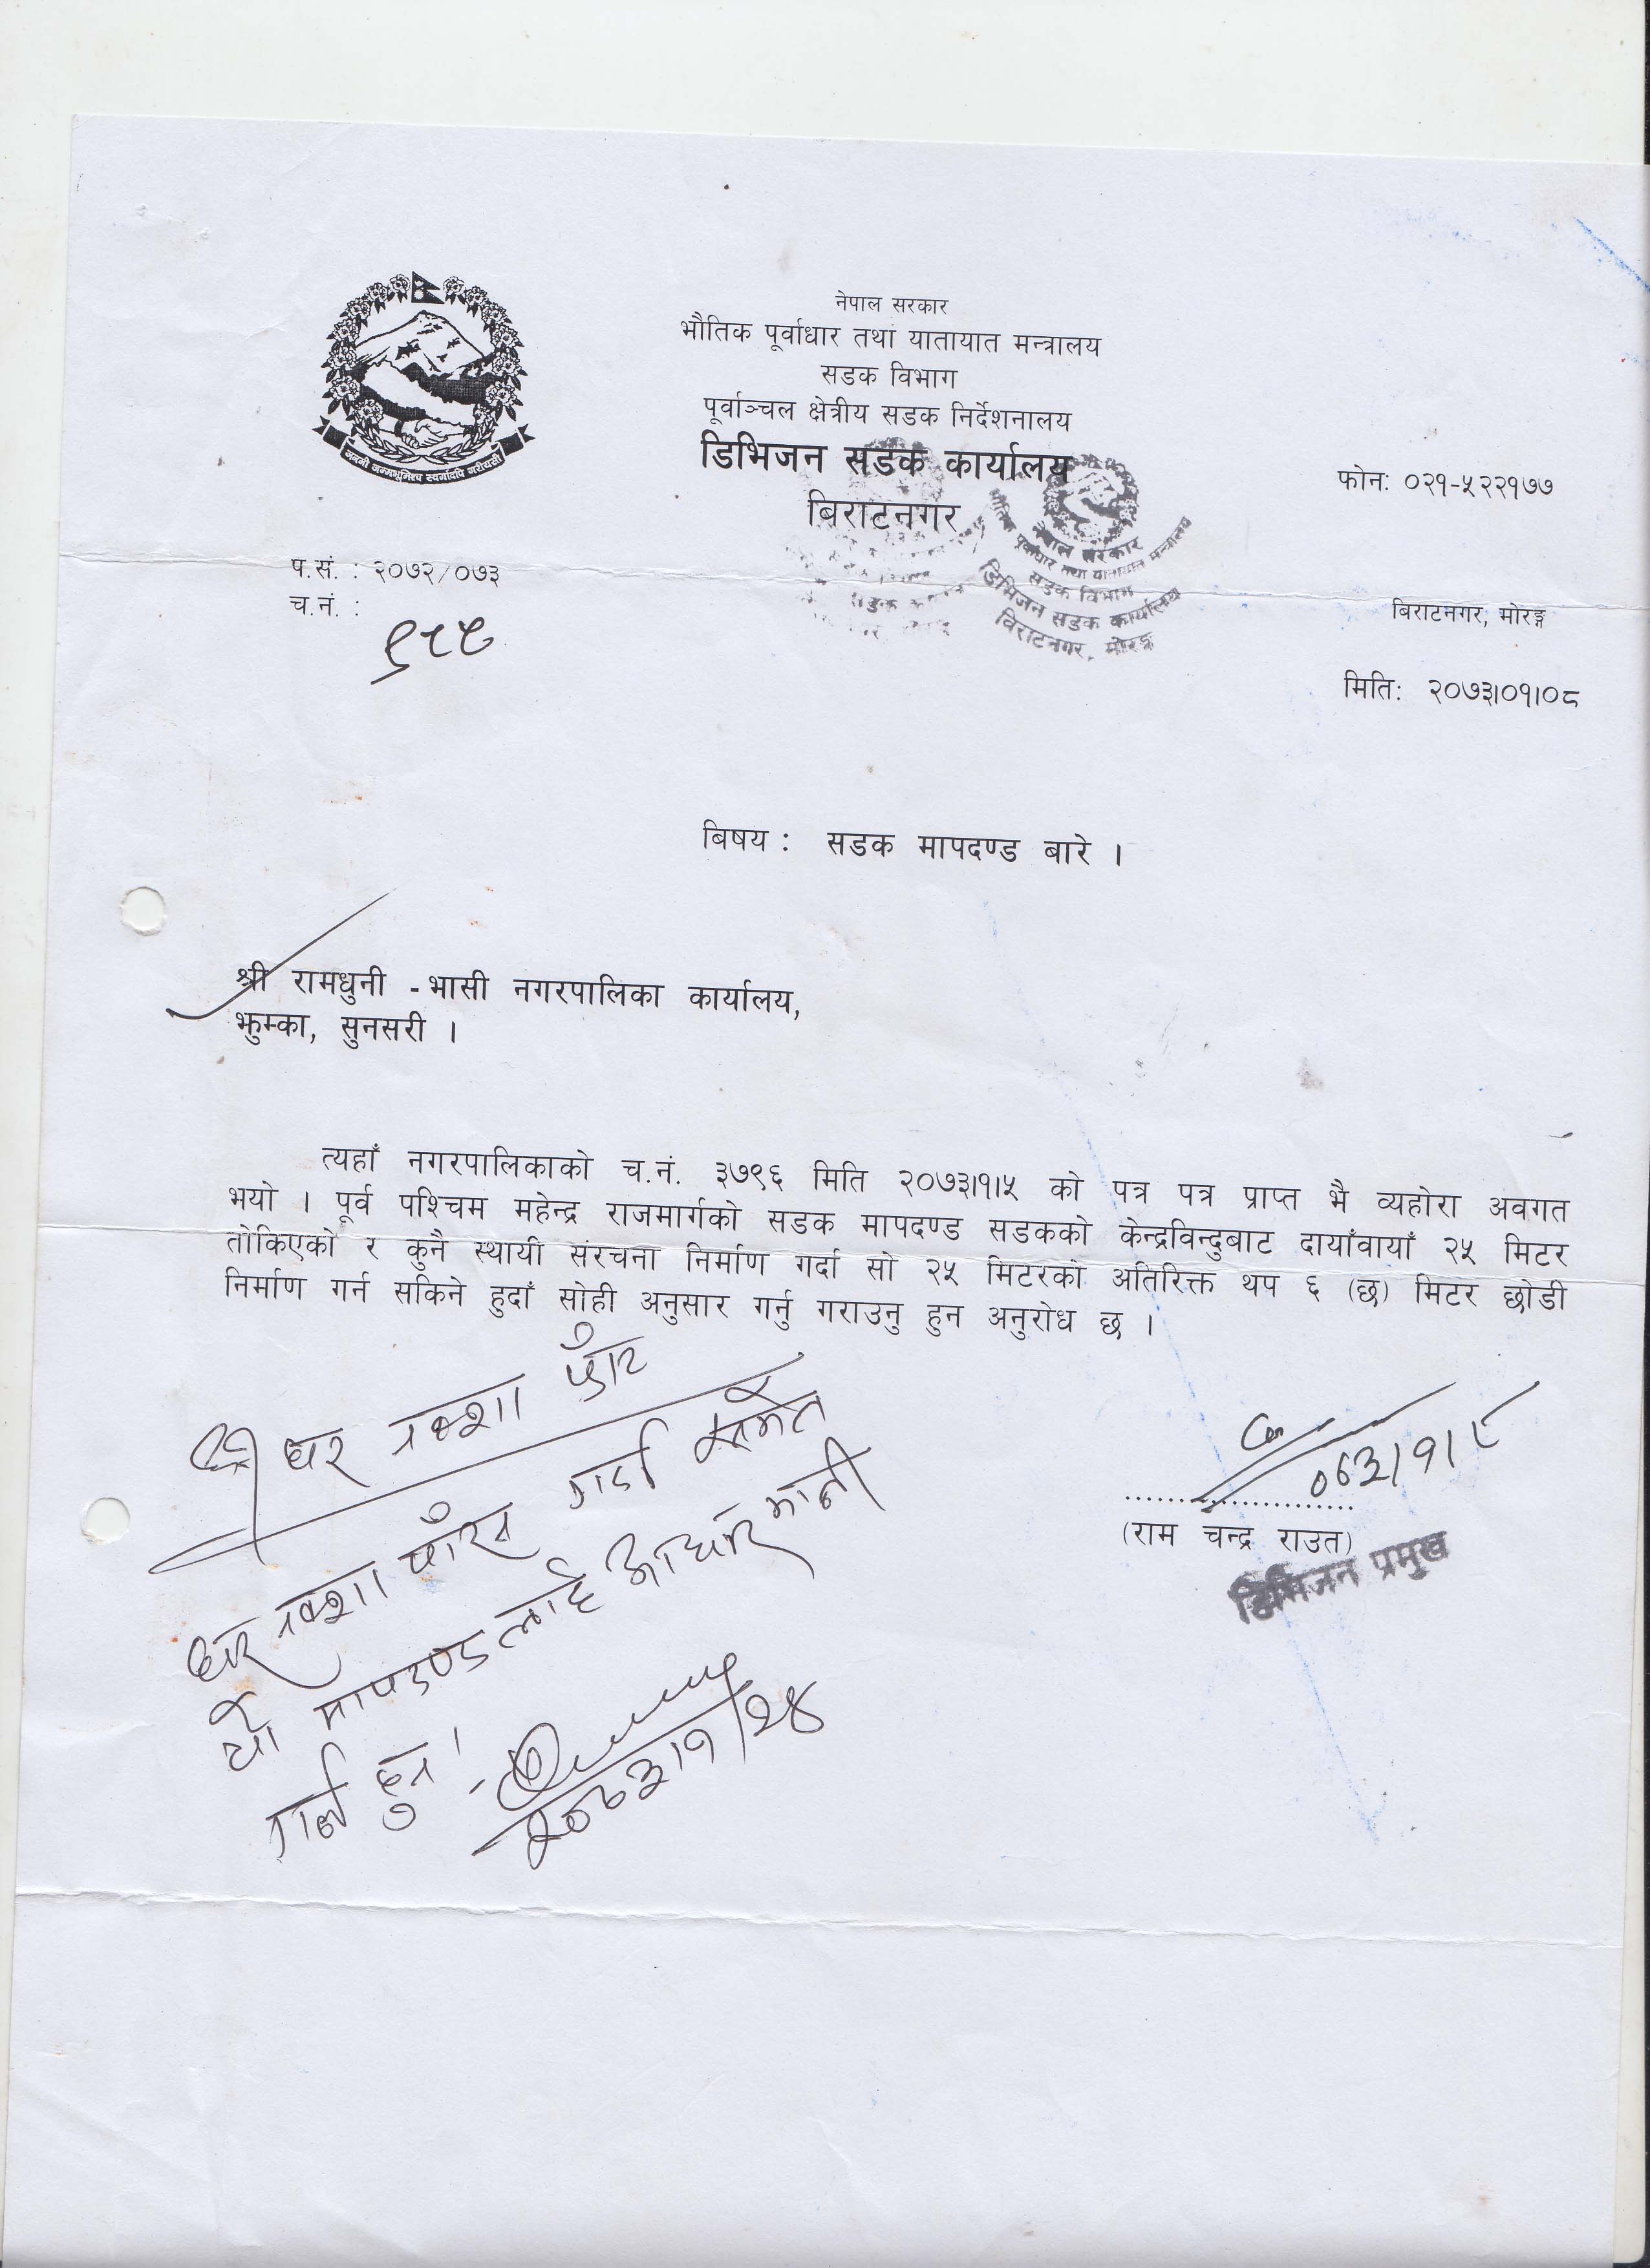 नेपाल सरकार
भौतिक पूर्वाधार तथा यातायात मन्त्रालय
सडक विभाग
पूर्वाञ्चल क्षेत्रीय सडक निर्देशनालय
डिभिजन सडक कार्यालय
बिराटनगर
फोन: ०२१-५२२१७७
जननी जन्मभूमिश्च स्वर्गादपि गरीयसी
नेपाल सरकार
भौतिक पूर्वाधार तथा यातायात मन्त्रालय
सडक विभाग
डिभिजन सडक कार्यालय
विराटनगर, मोरङ्ग
प.सं. : २०७२/०७३
च.नं. :
बिराटनगर, मोरङ्ग
मिति: २०७३।०१।०८
बिषय : सडक मापदण्ड बारे ।
श्री रामधुनी - भासी नगरपालिका कार्यालय,
झुम्का, सुनसरी ।
त्यहाँ नगरपालिकाको च.नं. ३७९६ मिति २०७३।१।५ को पत्र पत्र प्राप्त भै व्यहोरा अवगत
भयो । पूर्व पश्चिम महेन्द्र राजमार्गको सडक मापदण्ड सडकको केन्द्रविन्दुबाट दायाँवायाँ २५ मिटर
तोकिएको र कुनै स्थायी संरचना निर्माण गर्दा सो २५ मिटरको अतिरिक्त थप ६ (छ) मिटर छोडी
निर्माण गर्न सकिने हुदाँ सोही अनुसार गर्नु गराउनु हुन अनुरोध छ ।
श्री घर नक्शा फाँट
घर नक्शा पास गर्दा समेत
यो मापदण्डलाई आधार मानी
गर्नु हुन ।
२०७३।१।२४
०७३।१।८
(राम चन्द्र राउत)
डिभिजन प्रमुख